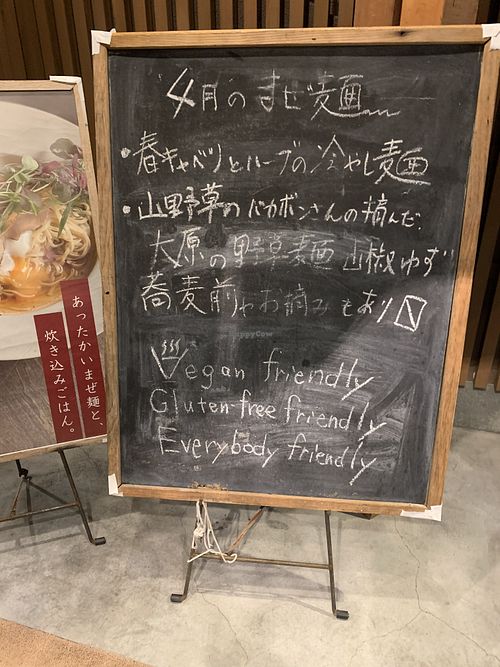 "4月"のまぜ麺
・春キャベツとハーブの冷やし麺
・山野草のバカボンさんの摘んだ
大原の野草麺 山椒ゆず
蕎麦前やお摘みもあり〼
Vegan friendly
Gluten-free friendly
Everybody friendly
あったかいまぜ麺と、
炊き込みごはん。
HappyCow